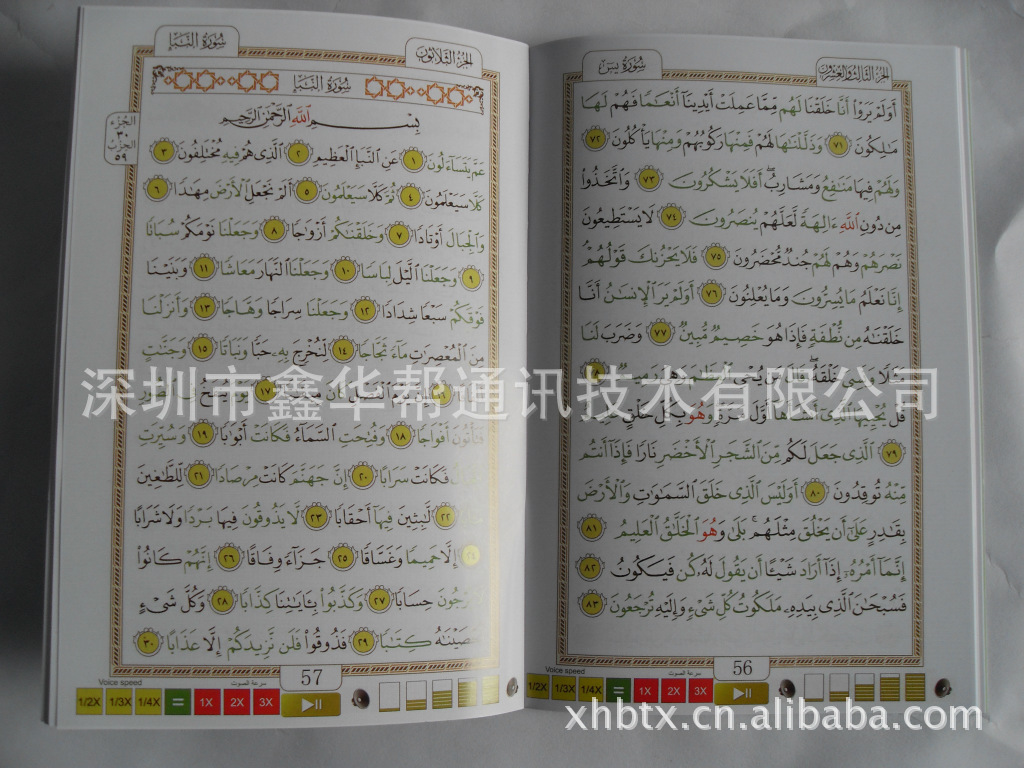 الجزء الثالث والعشرون
سورة يس
أَوَلَمْ يَرَوْا أَنَّا خَلَقْنَا لَهُم مِّمَّا عَمِلَتْ أَيْدِينَا أَنْعَٰمًا فَهُمْ لَهَا
مَٰلِكُونَ ٧١ وَذَلَّلْنَٰهَا لَهُمْ فَمِنْهَا رَكُوبُهُمْ وَمِنْهَا يَأْكُلُونَ ٧٢
وَلَهُمْ فِيهَا مَنَٰفِعُ وَمَشَارِبُ ۖ أَفَلَا يَشْكُرُونَ ٧٣ وَٱتَّخَذُوا
مِن دُونِ ٱللَّهِ ءَالِهَةً لَّعَلَّهُمْ يُنصَرُونَ ٧٤ لَا يَسْتَطِيعُونَ
نَصْرَهُمْ وَهُمْ لَهُمْ جُندٌ مُّحْضَرُونَ ٧٥ فَلَا يَحْزُنكَ قَوْلُهُمْ
إِنَّا نَعْلَمُ مَا يُسِرُّونَ وَمَا يُعْلِنُونَ ٧٦ أَوَلَمْ يَرَ ٱلْإِنسَٰنُ أَنَّا
خَلَقْنَٰهُ مِن نُّطْفَةٍ فَإِذَا هُوَ خَصِيمٌ مُّبِينٌ ٧٧ وَضَرَبَ لَنَا
مَثَلًا وَنَسِىَ خَلْقَهُ
قُلْ يُحْيِيهَا ٱلَّذِىٓ أَنشَأَهَآ أَوَّلَ مَرَّةٍ وَهُوَ بِكُلِّ خَلْقٍ عَلِيمٌ
٧٩ ٱلَّذِى جَعَلَ لَكُم مِّنَ ٱلشَّجَرِ ٱلْأَخْضَرِ نَارًا فَإِذَآ أَنتُم
مِّنْهُ تُوقِدُونَ ٨٠ أَوَلَيْسَ ٱلَّذِى خَلَقَ ٱلسَّمَٰوَٰتِ وَٱلْأَرْضَ
بِقَٰدِرٍ عَلَىٰٓ أَن يَخْلُقَ مِثْلَهُم ۚ بَلَىٰ وَهُوَ ٱلْخَلَّٰقُ ٱلْعَلِيمُ ٨١
إِنَّمَآ أَمْرُهُۥٓ إِذَآ أَرَادَ شَيْـًٔا أَن يَقُولَ لَهُۥ كُن فَيَكُونُ ٨٢
فَسُبْحَٰنَ ٱلَّذِى بِيَدِهِۦ مَلَكُوتُ كُلِّ شَىْءٍ وَإِلَيْهِ تُرْجَعُونَ ٨٣
56
Voice speed سرعة الصوت
1/2X 1/3X 1/4X = 1X 2X 3X
الجزء الثلاثون
سورة النبإ
سورة النبإ
الجزء
٣٠
الحزب
٥٩
بِسْمِ ٱللَّهِ ٱلرَّحْمَٰنِ ٱلرَّحِيمِ
عَمَّ يَتَسَآءَلُونَ ١ عَنِ ٱلنَّبَإِ ٱلْعَظِيمِ ٢ ٱلَّذِى هُمْ فِيهِ مُخْتَلِفُونَ ٣
كَلَّا سَيَعْلَمُونَ ٤ ثُمَّ كَلَّا سَيَعْلَمُونَ ٥ أَلَمْ نَجْعَلِ ٱلْأَرْضَ مِهَٰدًا ٦
وَٱلْجِبَالَ أَوْتَادًا ٧ وَخَلَقْنَٰكُمْ أَزْوَٰجًا ٨ وَجَعَلْنَا نَوْمَكُمْ سُبَاتًا
٩ وَجَعَلْنَا ٱلَّيْلَ لِبَاسًا ١٠ وَجَعَلْنَا ٱلنَّهَارَ مَعَاشًا ١١ وَبَنَيْنَا
فَوْقَكُمْ سَبْعًا شِدَادًا ١٢ وَجَعَلْنَا سِرَاجًا وَهَّاجًا ١٣ وَأَنزَلْنَا
مِنَ ٱلْمُعْصِرَٰتِ مَآءً ثَجَّاجًا ١٤ لِّنُخْرِجَ بِهِۦ حَبًّا وَنَبَاتًا ١٥ وَجَنَّٰتٍ
١٧ يَوْمَ يُنفَخُ فِى ٱلصُّورِ
فَتَأْتُونَ أَفْوَاجًا ١٨ وَفُتِحَتِ ٱلسَّمَآءُ فَكَانَتْ أَبْوَٰبًا ١٩ وَسُيِّرَتِ
فَكَانَتْ سَرَابًا ٢٠ إِنَّ جَهَنَّمَ كَانَتْ مِرْصَادًا ٢١ لِّلطَّٰغِينَ
٢٢ لَّٰبِثِينَ فِيهَآ أَحْقَابًا ٢٣ لَّا يَذُوقُونَ فِيهَا بَرْدًا وَلَا شَرَابًا
٢٤ إِلَّا حَمِيمًا وَغَسَّاقًا ٢٥ جَزَآءً وِفَاقًا ٢٦ إِنَّهُمْ كَانُوا
يَرْجُونَ حِسَابًا ٢٧ وَكَذَّبُوا بِـَٔايَٰتِنَا كِذَّابًا ٢٨ وَكُلَّ شَىْءٍ
أَحْصَيْنَٰهُ كِتَٰبًا ٢٩ فَذُوقُوا فَلَن نَّزِيدَكُمْ إِلَّا عَذَابًا ٣٠
57
Voice speed سرعة الصوت
1/2X 1/3X 1/4X = 1X 2X 3X
深圳市鑫华帮通讯技术有限公司
xhbtx.cn.alibaba.com